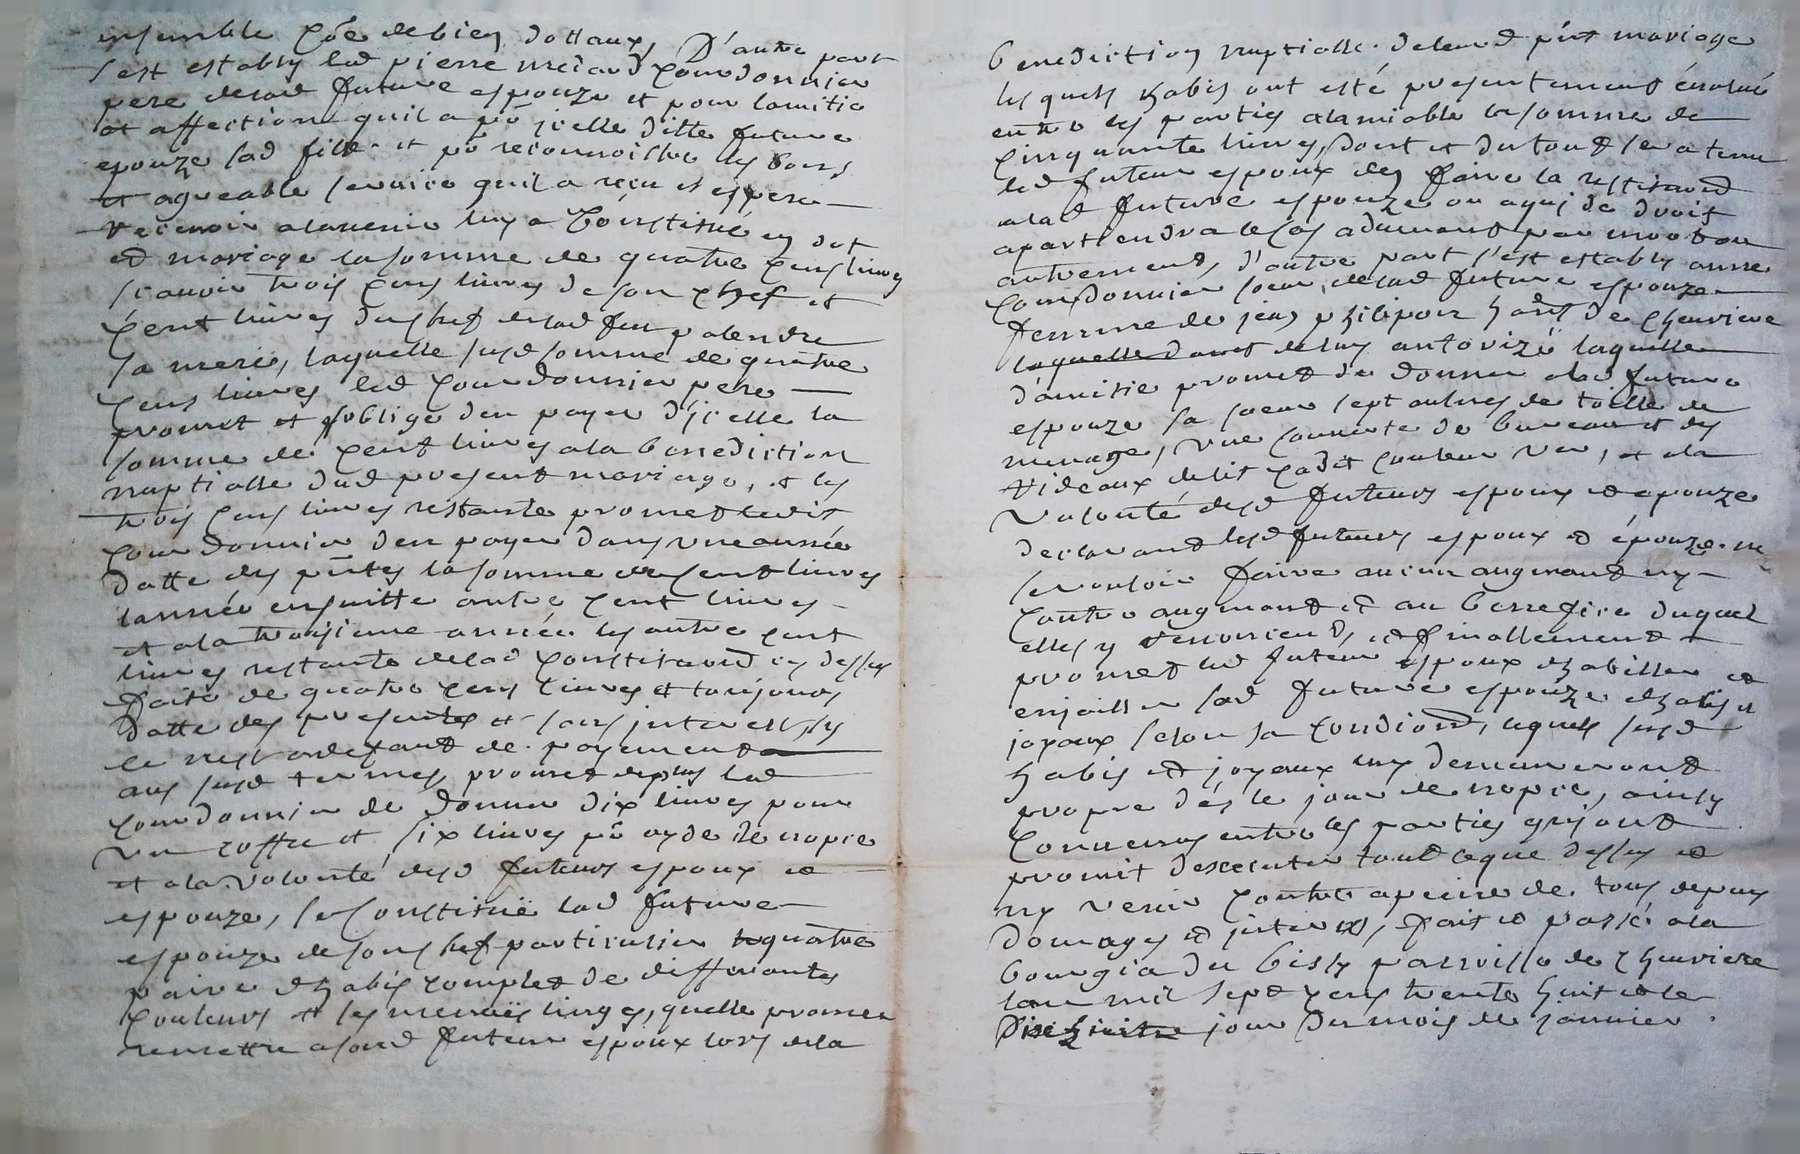 ensemble de bien dottaux, D'autre part
s'est estably led pierre Courdonnier
pere delad future espouze et pour lamitie
et affection quil a po jcelle ditte future
epouze sad fille. et po reconnoistre les bons
et agreable service quil a reçu et espere
recevoir alavenir luy a Constitué en dot
et mariage lasomme de quatre Cens livres
scavoir trois Cens livres deson chef et
Cent livres duchef delad feu
sa mere, laquelle susd somme de quatre
Cens livres led Courdonnier pere
promet et soblige den payer djcelle la
somme de Cent livres ala benediction
nuptialle dud present mariage, et les
trois Cens livres restante promet ledit
Courdonnier den payer dans une année
datte des pntes lasomme de Cent livres
lannée ensuitte autre Cent livres
et ala troisieme année les autre Cent
livres restante delad Constitution cy dessus
faite de quatre Cens livres et toujours
datte des presentes et sans jnterest sy
ce nest adefaut de payement
aus susd termes, promet deplus led
Courdonnier de donner dix livres pour
un coffre et six livres po ayde de nopce
et ala volonté desd futeurs espoux et
espouze, se Constitue lad future
espouze deson chef particulier quatre
paire dhabis complet de differantes
Couleurs et les menues linges, quelle promet
remettre asond futeur espoux lors dela
benediction nuptialle. deleurd pnt mariage
les quels habis ont esté presentement évalué
entre les parties alamiable lasomme de
Cinquante livres, dont et dutout sera tenu
led futeur espoux den faire la restitution
alad future espouze ou aqui de droit
apartiendra le Cas advenant par mort ou
autrement, d'autre part s'est estably anne
Courdonnier soeur, delad future espouze
femme de jean philipon habt de Chevriere
delluy autorizé laquelle
d'amitie promet de donner alad future
espouze sa soeur sept aulnes de toille de
menage, une couverte de bureau et des
rideaux delit Cadit Couleur ver, et ala
volonté desd futeurs espoux et epouze
declarant lesd futeurs espoux et épouze. ne
se vouloir faire aucun augmant ny
Contre augmant et au benefice duquel
elles y renoncent, et finallement
promet led futeur espoux dhabiller et
enjoiller sad future espouze dhabis et
joyaux selon sa Condiond, lequels susd
habis et joyaux luy demeureront
propre dés le jour de nopce, ainsy
Convenus entre les parties qui ont
promit dexecuter tout ceque dessus et
ny venir Contre apeine de tous depens
domages et jnterest, fait et passé ala
bourgia du parroisse de Chevriere
lan mil sept Cens trente huit et le
jour du mois de janvier.